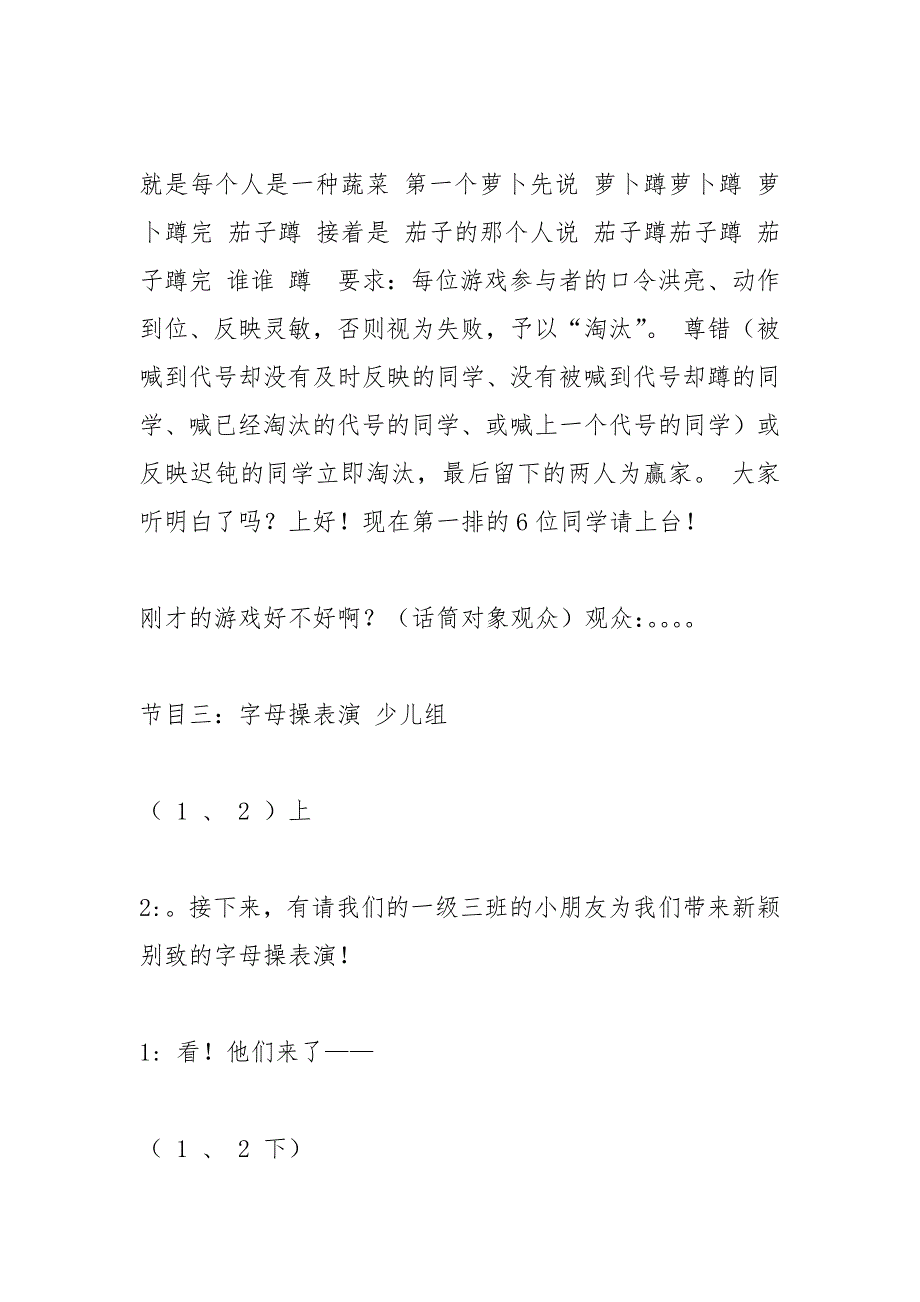 就是每个人是一种蔬菜 第一个萝卜先说 萝卜蹲萝卜蹲 萝
卜蹲完 茄子蹲 接着是 茄子的那个人说 茄子蹲茄子蹲 茄
子蹲完 谁谁 蹲　要求：每位游戏参与者的口令洪亮、动作
到位、反映灵敏，否则视为失败，予以“淘汰”。 尊错（被
喊到代号却没有及时反映的同学、没有被喊到代号却蹲的同
学、喊已经淘汰的代号的同学、或喊上一个代号的同学）或
反映迟钝的同学立即淘汰，最后留下的两人为赢家。 大家
听明白了吗？上好！现在第一排的 6 位同学请上台！
刚才的游戏好不好啊？（话筒对象观众）观众：。。。。
节目三：字母操表演 少儿组
（ 1 、 2 ）上
2：。接下来，有请我们的一级三班的小朋友为我们带来新颖
别致的字母操表演！
1：看！他们来了——
（ 1 、 2 下）